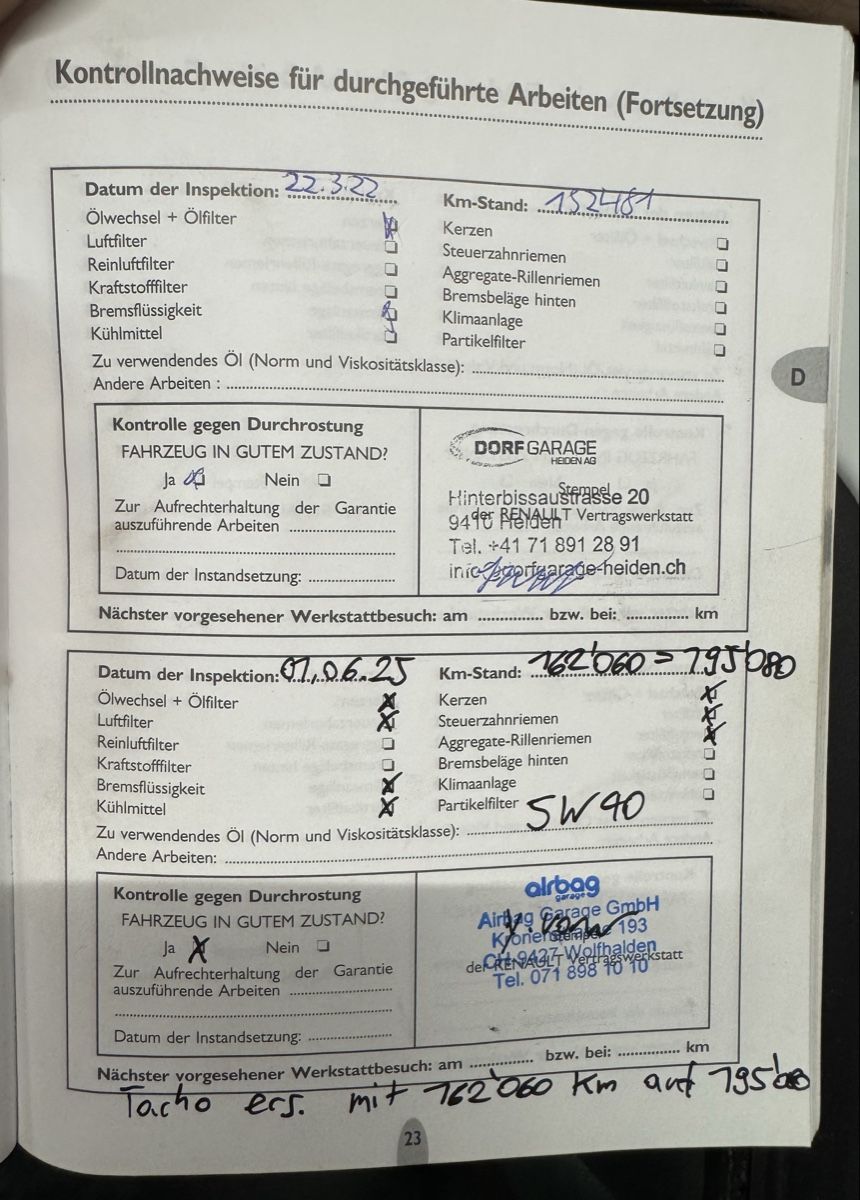 Kontrollnachweise für durchgeführte Arbeiten (Fortsetzung)
Datum der Inspektion: 22.3.22
Km-Stand: 152481
Ölwechsel + Ölfilter
Luftfilter
Reinluftfilter
Kraftstofffilter
Bremsflüssigkeit
Kühlmittel
Kerzen
Steuerzahnriemen
Aggregate-Rillenriemen
Bremsbeläge hinten
Klimaanlage
Partikelfilter
Zu verwendendes Öl (Norm und Viskositätsklasse):
Andere Arbeiten :
Kontrolle gegen Durchrostung
FAHRZEUG IN GUTEM ZUSTAND?
Ja Nein
Zur Aufrechterhaltung der Garantie
auszuführende Arbeiten
Datum der Instandsetzung:
DORFGARAGE
HEIDEN AG
Stempel
Hinterbissaustrasse 20
der RENAULT Vertragswerkstatt
9410 Heiden
Tel. +41 71 891 28 91
info@dorfgarage-heiden.ch
Nächster vorgesehener Werkstattbesuch: am bzw. bei: km
D
Datum der Inspektion: 01.06.25
Km-Stand: 162'060 = 195'080
Ölwechsel + Ölfilter
Luftfilter
Reinluftfilter
Kraftstofffilter
Bremsflüssigkeit
Kühlmittel
Kerzen
Steuerzahnriemen
Aggregate-Rillenriemen
Bremsbeläge hinten
Klimaanlage
Partikelfilter
Zu verwendendes Öl (Norm und Viskositätsklasse): 5W40
Andere Arbeiten:
Kontrolle gegen Durchrostung
FAHRZEUG IN GUTEM ZUSTAND?
Ja X Nein
Zur Aufrechterhaltung der Garantie
auszuführende Arbeiten
Datum der Instandsetzung:
airbag
garage
Airbag Garage GmbH
Kronenstrasse 193
Stempel
CH-9427 Wolfhalden
der RENAULT Vertragswerkstatt
Tel. 071 898 10 10
Nächster vorgesehener Werkstattbesuch: am bzw. bei: km
Tacho ers. mit 162'060 Km auf
23